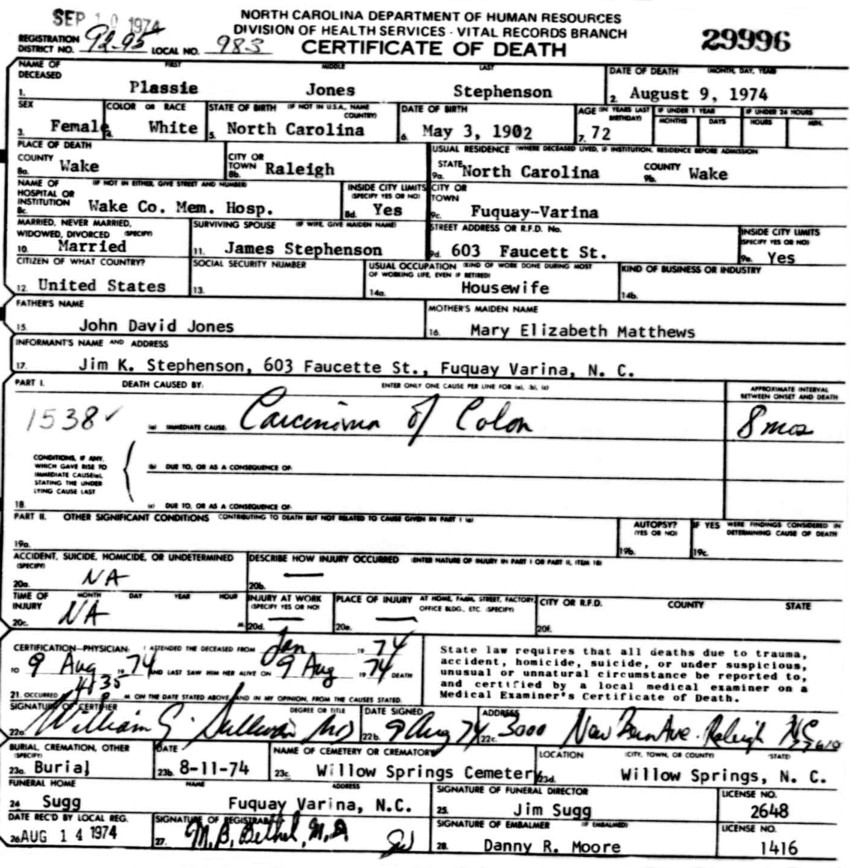 SEP 10 1974
NORTH CAROLINA DEPARTMENT OF HUMAN RESOURCES
DIVISION OF HEALTH SERVICES - VITAL RECORDS BRANCH
REGISTRATION DISTRICT NO. 92-95 LOCAL NO. 983 CERTIFICATE OF DEATH 29996
NAME OF DECEASED FIRST MIDDLE LAST DATE OF DEATH (MONTH, DAY, YEAR)
1. Plassie Jones Stephenson 2. August 9, 1974
SEX COLOR OR RACE STATE OF BIRTH (IF NOT IN U.S.A., NAME COUNTRY) DATE OF BIRTH AGE (IN YEARS LAST BIRTHDAY) IF UNDER 1 YEAR IF UNDER 24 HOURS
MONTHS DAYS HOURS MIN.
3. Female 4. White 5. North Carolina 6. May 3, 1902 7. 72
PLACE OF DEATH USUAL RESIDENCE (WHERE DECEASED LIVED, IF INSTITUTION, RESIDENCE BEFORE ADMISSION
COUNTY CITY OR TOWN STATE COUNTY
8a. Wake 8b. Raleigh 9a. North Carolina 9b. Wake
NAME OF HOSPITAL OR INSTITUTION (IF NOT IN EITHER, GIVE STREET AND NUMBER) INSIDE CITY LIMITS (SPECIFY YES OR NO) CITY OR TOWN
8c. Wake Co. Mem. Hosp. 8d. Yes 9c. Fuquay-Varina
MARRIED, NEVER MARRIED, WIDOWED, DIVORCED (SPECIFY) SURVIVING SPOUSE (IF WIFE, GIVE MAIDEN NAME) STREET ADDRESS OR R.F.D. No. INSIDE CITY LIMITS (SPECIFY YES OR NO)
10. Married 11. James Stephenson 9d. 603 Faucett St. 9e. Yes
CITIZEN OF WHAT COUNTRY? SOCIAL SECURITY NUMBER USUAL OCCUPATION (KIND OF WORK DONE DURING MOST OF WORKING LIFE, EVEN IF RETIRED) KIND OF BUSINESS OR INDUSTRY
12. United States 13. 14a. Housewife 14b.
FATHER'S NAME MOTHER'S MAIDEN NAME
15. John David Jones 16. Mary Elizabeth Matthews
INFORMANT'S NAME AND ADDRESS
17. Jim K. Stephenson, 603 Faucette St., Fuquay Varina, N. C.
PART I. DEATH CAUSED BY: ENTER ONLY ONE CAUSE PER LINE FOR (a), (b), (c) APPROXIMATE INTERVAL BETWEEN ONSET AND DEATH
1538✓ (a) IMMEDIATE CAUSE Carcinoma of Colon 8 mos
CONDITIONS, IF ANY, WHICH GAVE RISE TO IMMEDIATE CAUSE(a), STATING THE UNDER LYING CAUSE LAST
(b) DUE TO, OR AS A CONSEQUENCE OF:
18. (c) DUE TO, OR AS A CONSEQUENCE OF:
PART II. OTHER SIGNIFICANT CONDITIONS CONTRIBUTING TO DEATH BUT NOT RELATED TO CAUSE GIVEN IN PART I (a) AUTOPSY? (YES OR NO) IF YES WERE FINDINGS CONSIDERED IN DETERMINING CAUSE OF DEATH
19a. 19b. 19c.
ACCIDENT, SUICIDE, HOMICIDE, OR UNDETERMINED (SPECIFY) DESCRIBE HOW INJURY OCCURRED (ENTER NATURE OF INJURY IN PART I OR PART II, ITEM 18)
20a. NA 20b. —
TIME OF INJURY MONTH DAY YEAR HOUR INJURY AT WORK (SPECIFY YES OR NO) PLACE OF INJURY AT HOME, FARM, STREET, FACTORY, OFFICE BLDG., ETC. (SPECIFY) CITY OR R.F.D. COUNTY STATE
20c. NA 20d. — 20e. — 20f.
CERTIFICATION—PHYSICIAN: I ATTENDED THE DECEASED FROM Jan 1974
TO 9 Aug 1974 AND LAST SAW HIM HER ALIVE ON 9 Aug 1974 DEATH
21. OCCURRED 4:35 M. ON THE DATE STATED ABOVE, AND IN MY OPINION, FROM THE CAUSES STATED.
State law requires that all deaths due to trauma,
accident, homicide, suicide, or under suspicious,
unusual or unnatural circumstance be reported to,
and certified by a local medical examiner on a
Medical Examiner's Certificate of Death.
SIGNATURE OF CERTIFIER DEGREE OR TITLE DATE SIGNED ADDRESS
22a. William G. Sullivan MD 22b. 9 Aug 74 22c. 3000 New Bern Ave. Raleigh NC 27610
BURIAL, CREMATION, OTHER (SPECIFY) DATE NAME OF CEMETERY OR CREMATORY LOCATION (CITY, TOWN, OR COUNTY) (STATE)
23a. Burial 23b. 8-11-74 23c. Willow Springs Cemetery 23d. Willow Springs, N. C.
FUNERAL HOME NAME ADDRESS SIGNATURE OF FUNERAL DIRECTOR LICENSE NO.
24 Sugg Fuquay Varina, N.C. 25. Jim Sugg 2648
DATE REC'D BY LOCAL REG. SIGNATURE OF REGISTRAR SIGNATURE OF EMBALMER (IF EMBALMED) LICENSE NO.
26 AUG 14 1974 27. M. B. Bethel, M.D. 28. Danny R. Moore 1416